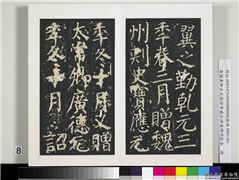 翼之勤乾元三
年春二月贈魏
州刺史寶應元
年冬十月又贈
太常卿廣德元
年冬十月詔
8